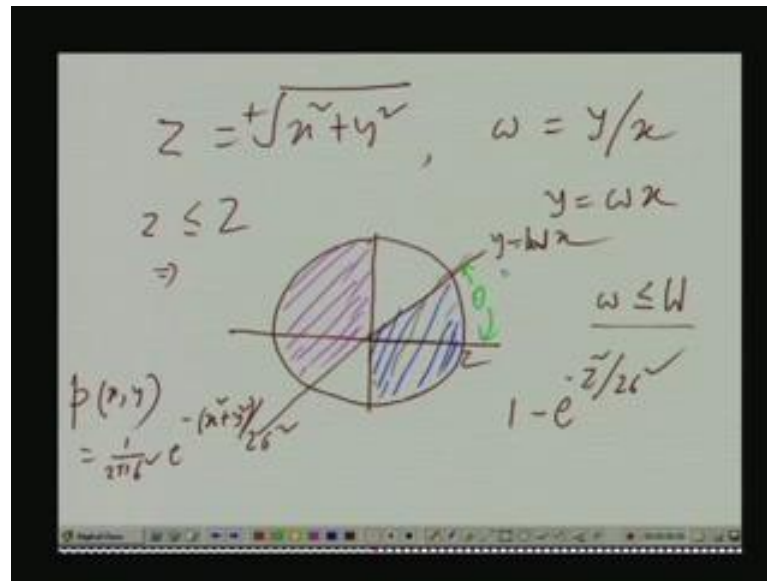 z = +√(x²+y²) , ω = y/x
z ≤ Z
y = ωx
⇒
y=Wx
θ
ω ≤ W
Z
p(x,y)
= 1/(2πσ²) e^(-(x²+y²)/2σ²)
1 - e^(-Z²/2σ²)